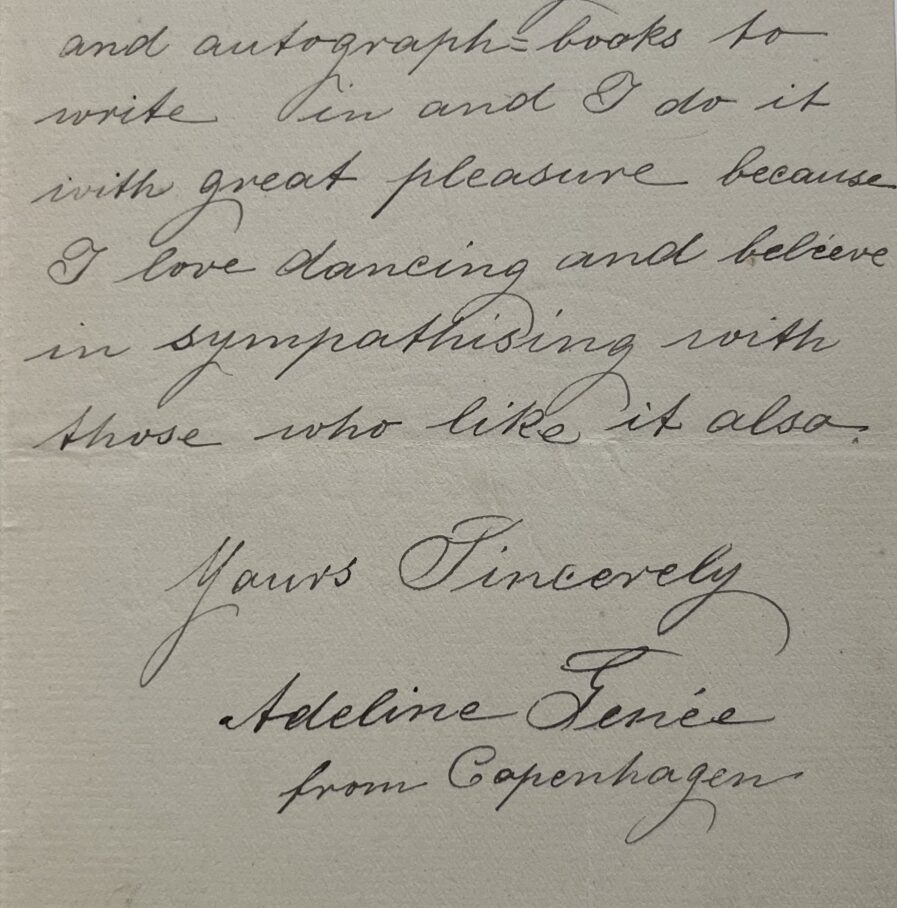 and autograph=books to
write in and I do it
with great pleasure because
I love dancing and believe
in sympathising with
those who like it also.
Yours Sincerely
Adeline Genée
from Copenhagen